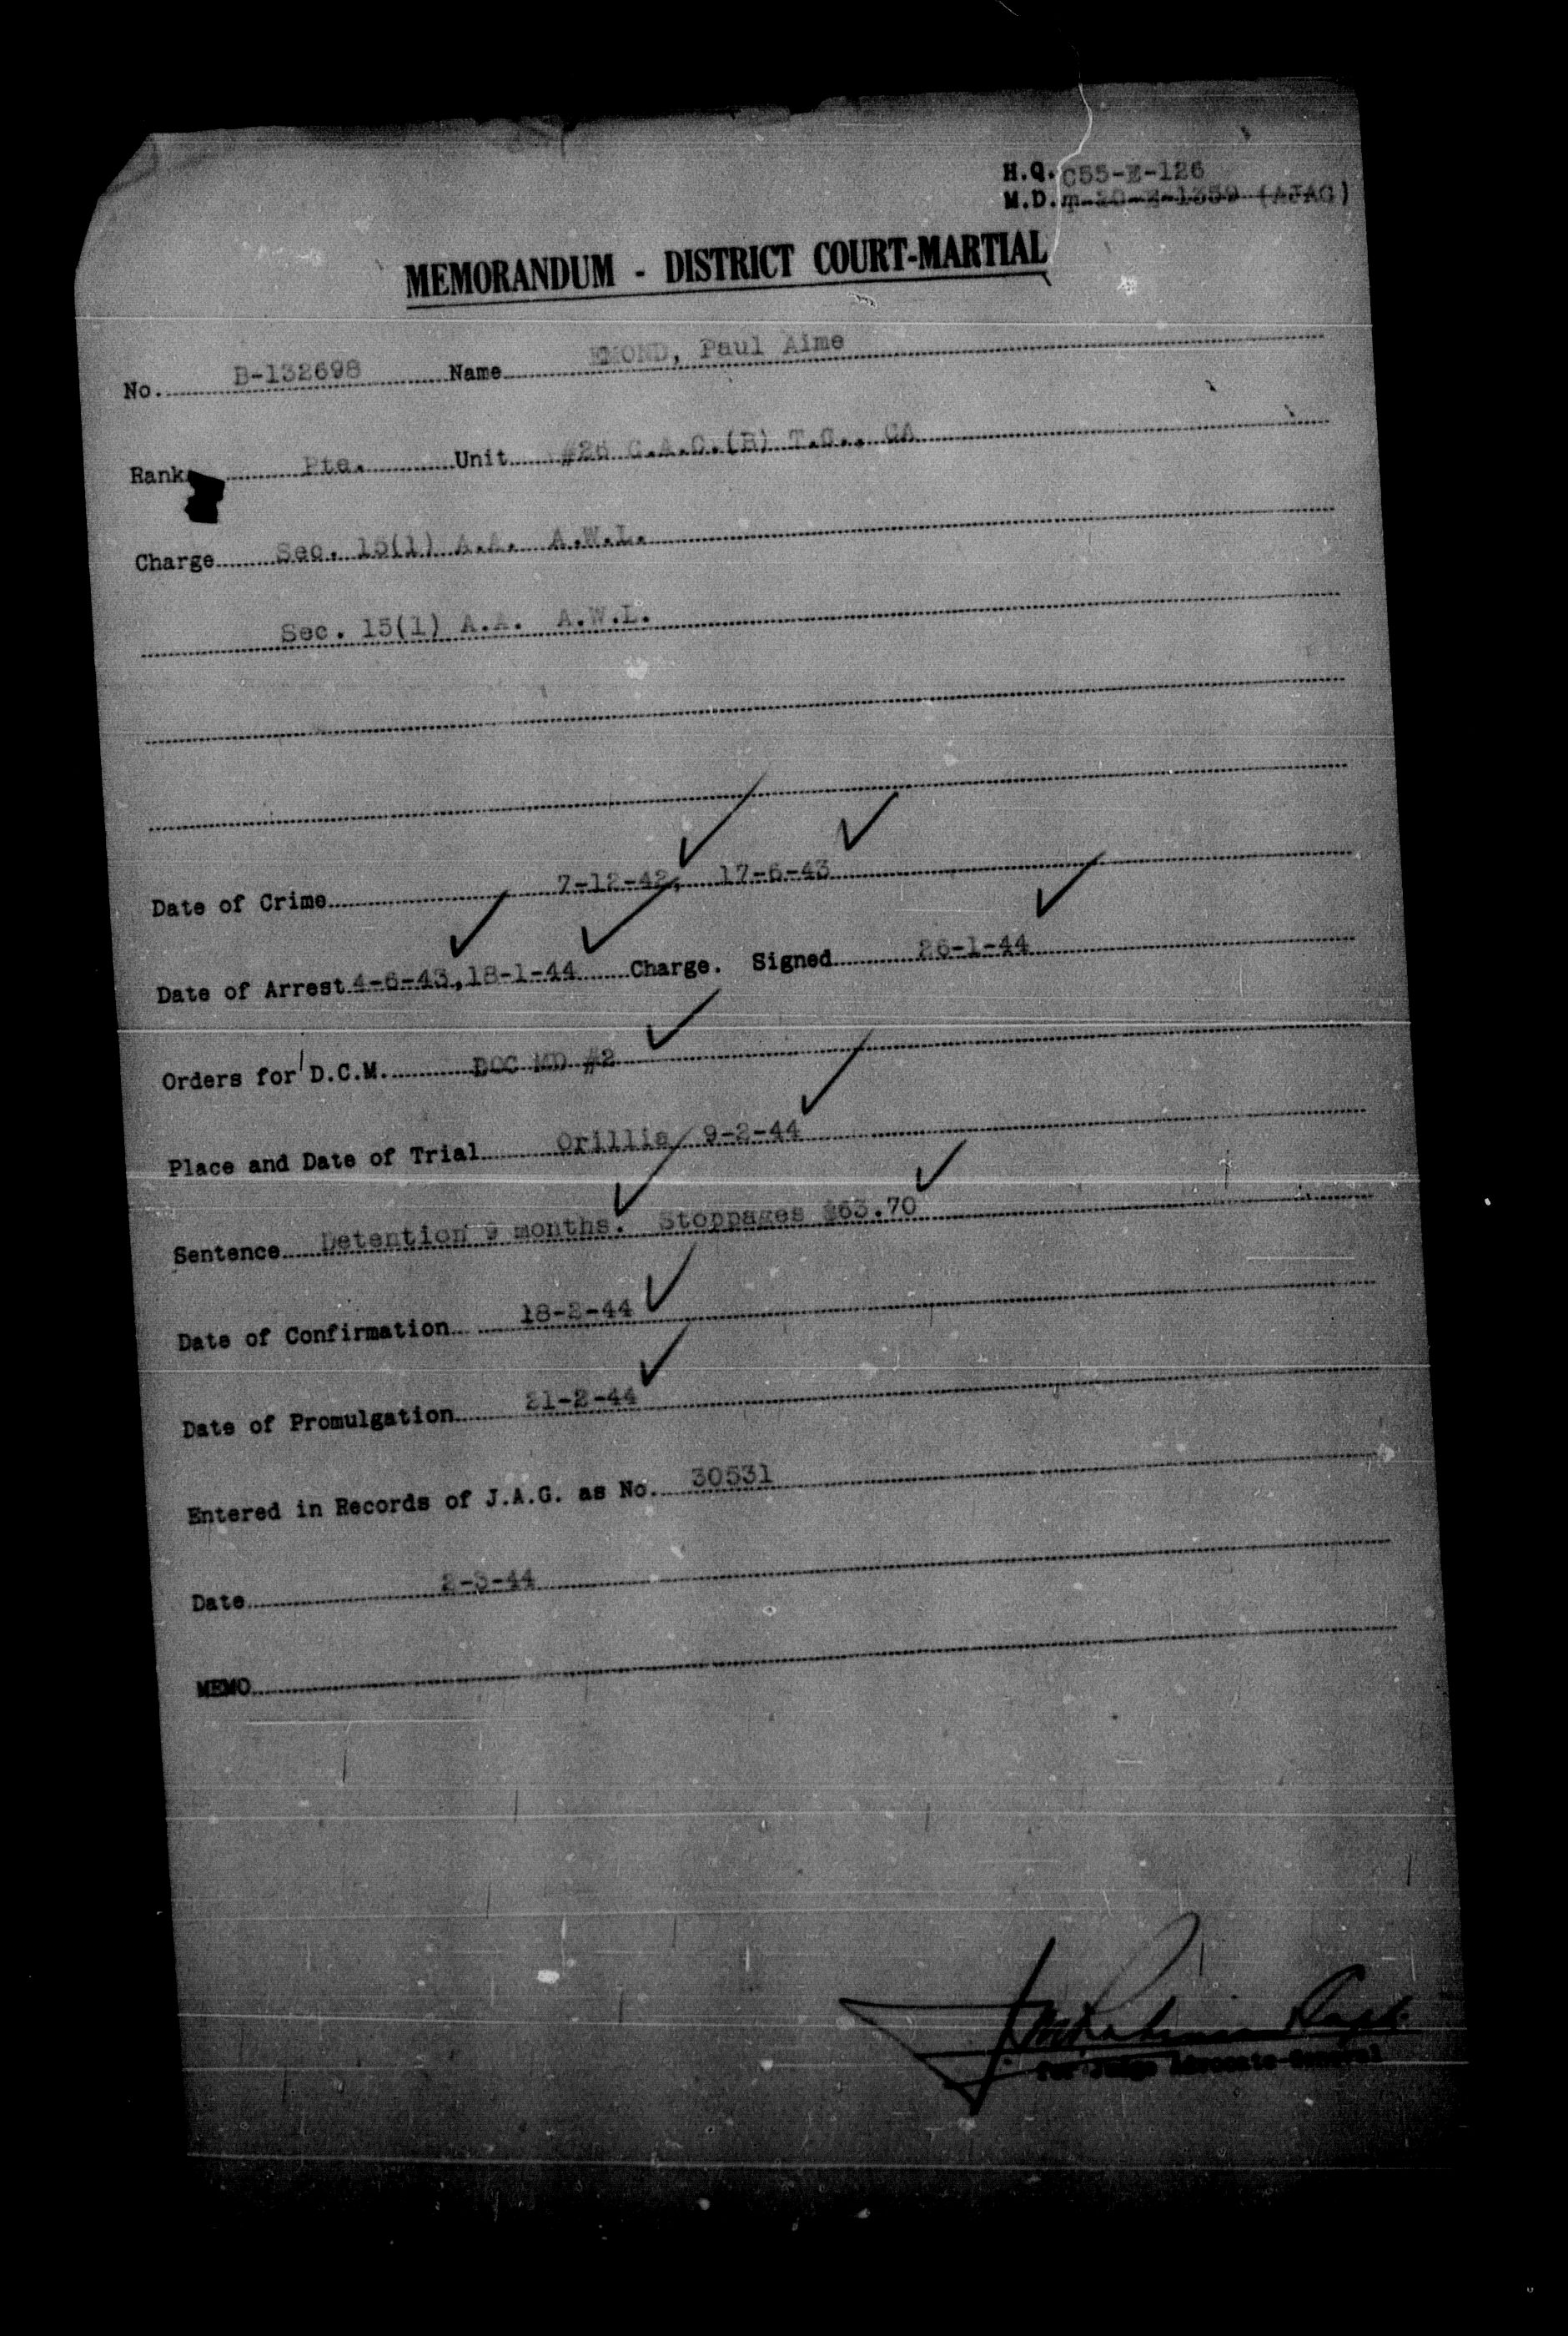 H.Q. C55-E-126
M.D. m-20-E-1359 (AJAG)
MEMORANDUM - DISTRICT COURT-MARTIAL
No. B-132698 Name EMOND, Paul Aime
Rank Pte. Unit #26 C.A.C.(B) T.C., CA
Charge Sec. 15(1) A.A. A.W.L.
Sec. 15(1) A.A. A.W.L.
Date of Crime 7-12-42, 17-6-43
Date of Arrest 4-6-43, 18-1-44 Charge. Signed 26-1-44
Orders for D.C.M. DOC MD #2
Place and Date of Trial Orillia 9-2-44
Sentence Detention 9 months. Stoppages $63.70
Date of Confirmation 18-2-44
Date of Promulgation 21-2-44
Entered in Records of J.A.G. as No. 30531
Date 2-3-44
MEMO
for Judge Advocate-General